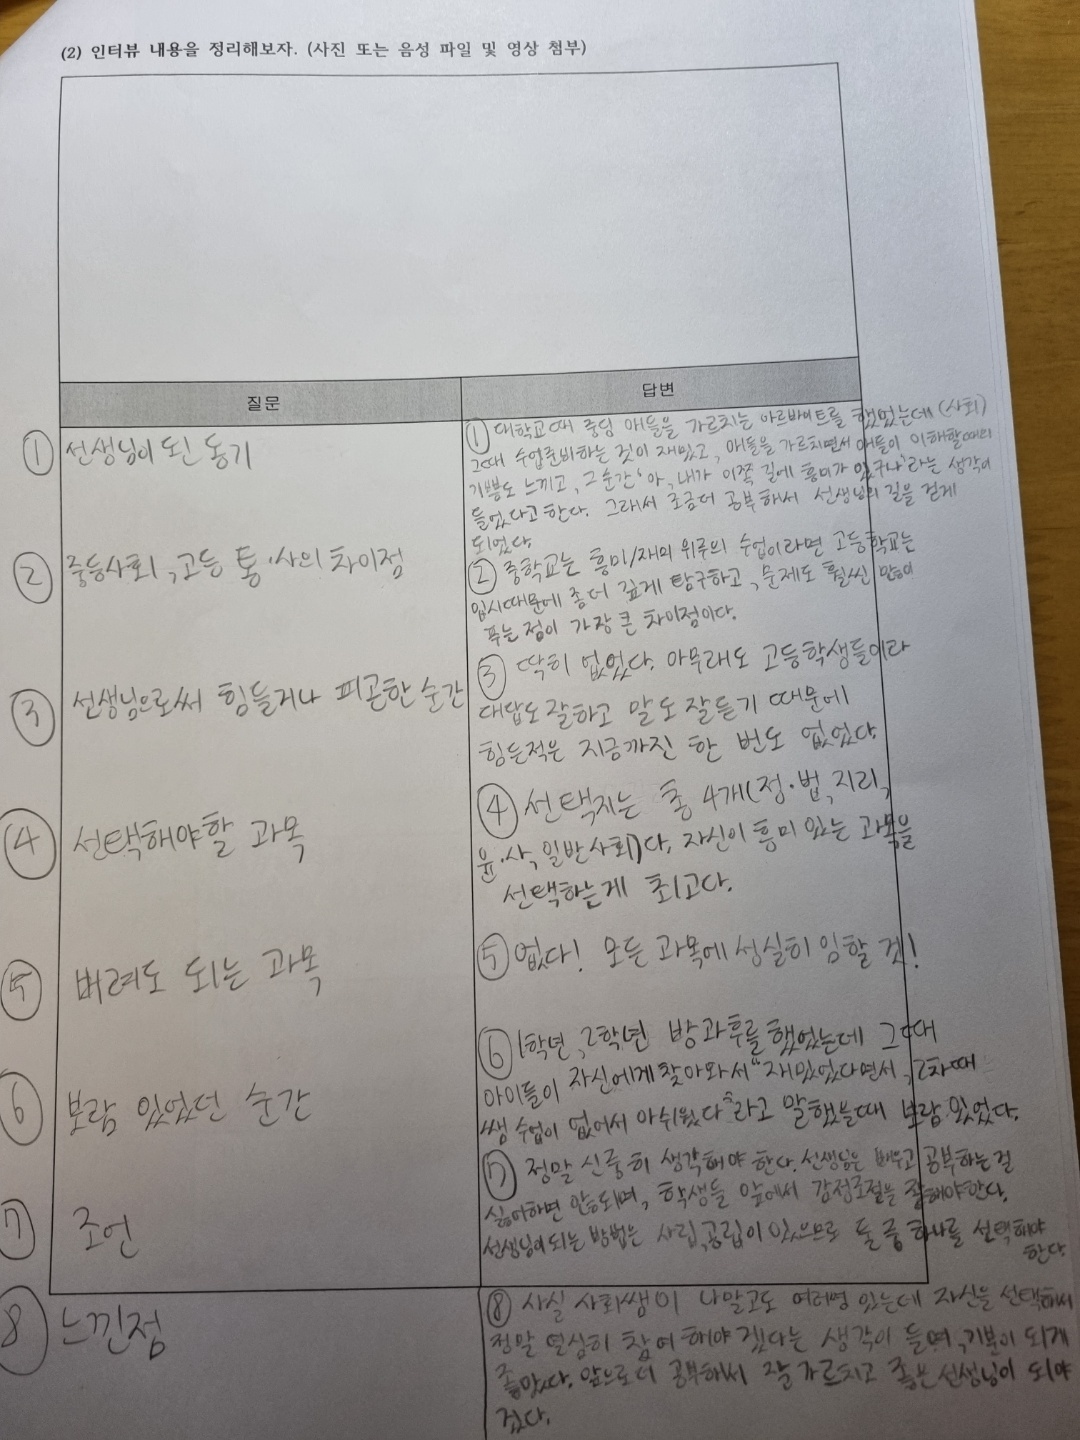 (2) 인터뷰 내용을 정리해보자. (사진 또는 음성 파일 및 영상 첨부)
질문
답변
① 선생님이 된 동기
① 대학교때 중딩 애들을 가르치는 아르바이트를 했었는데 (사회)
그때 수업준비하는 것이 재밌고, 애들을 가르치면서 애들이 이해할때의
기쁨도 느끼고, 그 순간 '아, 내가 이쪽 길에 흥미가 있구나'라는 생각이
들었다고 한다. 그래서 조금더 공부해서 선생님의 길을 걷게
되었다.
② 중등사회, 고등 통·사의 차이점
② 중학교는 흥미/재미 위주의 수업이라면 고등학교는
입시때문에 좀더 깊게 탐구하고, 문제도 훨씬 많이
푸는 점이 가장 큰 차이점이다.
③ 선생님으로써 힘들거나 피곤한 순간
③ 딱히 없었다. 아무래도 고등학생들이라
대답도 잘하고 말도 잘듣기 때문에
힘든적은 지금까진 한 번도 없었다.
④ 선택해야할 과목
④ 선택지는 총 4개(정·법, 지리,
윤·사, 일반사회)다. 자신이 흥미 있는 과목을
선택하는게 최고다.
⑤ 버려도 되는 과목
⑤ 없다! 모든 과목에 성실히 임할 것!
⑥ 보람 있었던 순간
⑥ 1학년, 2학년 방과후를 했었는데 그때
아이들이 자신에게 찾아와서 "재밌었다면서, 2차때
쌤 수업이 없어서 아쉬웠다"라고 말했을때 보람 있었다.
⑦ 조언
⑦ 정말 신중히 생각해야 한다. 선생님은 배우고 공부하는걸
싫어하면 안되며, 학생들 앞에서 감정조절을 잘해야한다.
선생님이 되는 방법은 사립, 공립이 있으므로 둘 중 하나를 선택해야
한다.
⑧ 느낀점
⑧ 사실 사회쌤이 나말고도 여러명 있는데 자신을 선택해서
정말 열심히 참여 해야 겠다는 생각이 들며, 기분이 되게
좋았다. 앞으로 더 공부해서 잘 가르치고 좋은 선생님이 되야
겠다.